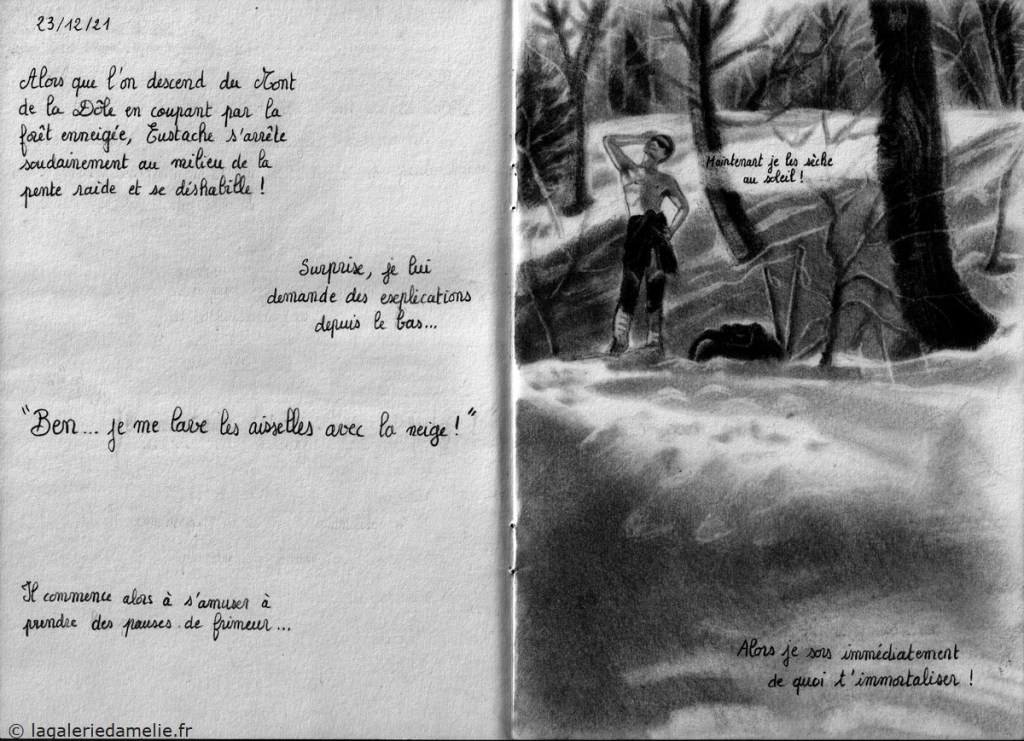 23/12/21
Alors que l'on descend du Mont
de la Dôle en coupant par la
forêt enneigée, Eustache s'arrête
soudainement au milieu de la
pente raide et se déshabille !
Surprise, je lui
demande des explications
depuis le bas...
"Ben... je me lave les aisselles avec la neige !"
Il commence alors à s'amuser à
prendre des pauses de frimeur...
Maintenant je les sèche
au soleil !
Alors je sors immédiatement
de quoi t'immortaliser !
© lagaleriedamelie.fr